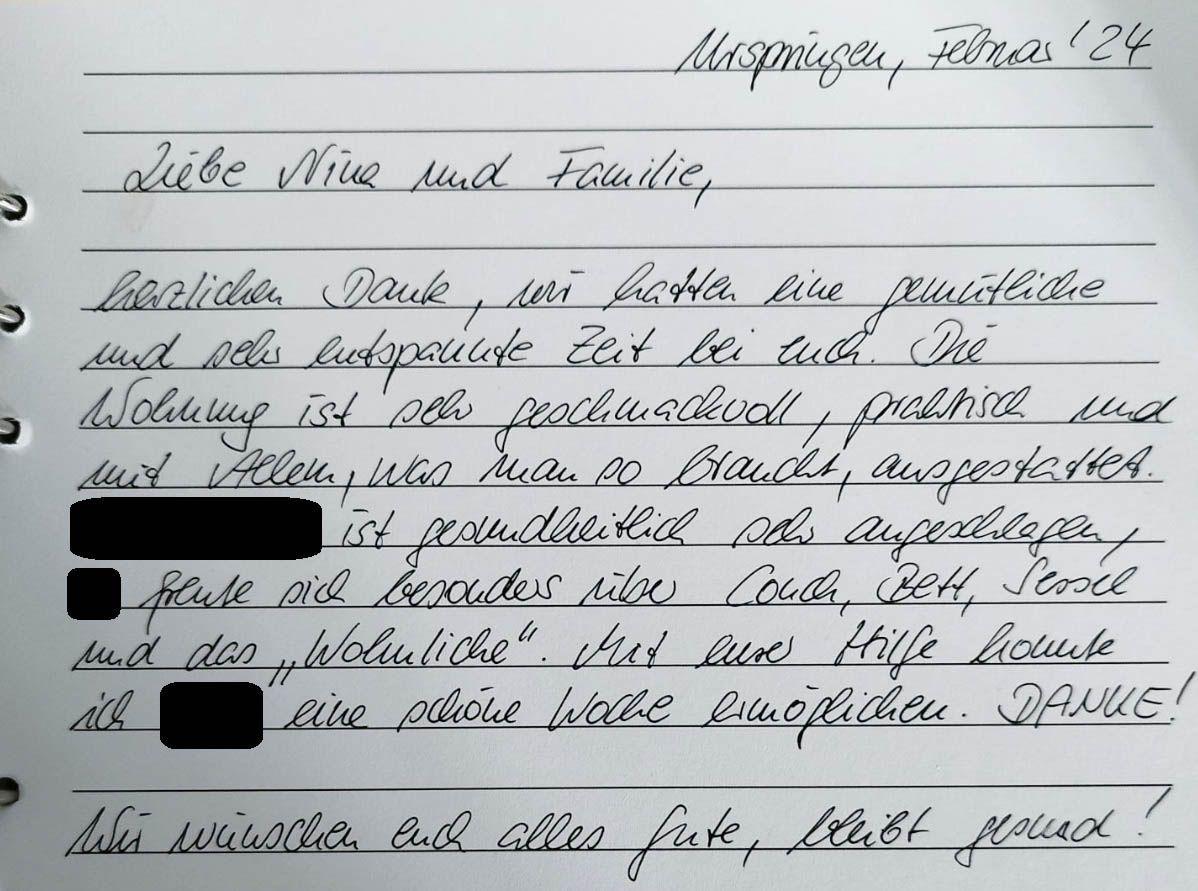 Urspringen, Februar '24
Liebe Nina und Familie,
herzlichen Dank, wir hatten eine gemütliche
und sehr entspannte Zeit bei euch. Die
Wohnung ist sehr geschmackvoll, praktisch und
mit Allem, was man so braucht, ausgestattet.
ist gesundheitlich sehr angeschlagen,
freute sich besonders über Couch, Bett, Sessel
und das „Wohnliche“. Mit eurer Hilfe konnte
ich eine schöne Woche ermöglichen. DANKE!
Wir wünschen euch alles Gute, bleibt gesund!